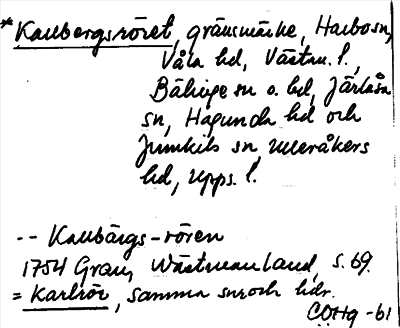 *Kallbergsröret, gränsmärke, Harbo sn,
Våla hd, Västm. l.,
Bälinge sn o. hd, Järlåsa
sn, Hagunda hd och
Jumkils sn, Ulleråkers
hd, Upps. l.
-- Kallbärgs-rören
1754 Grau, Wästmanland, s. 69.
= Karlrör, samma snr och hdr.
COHg -61